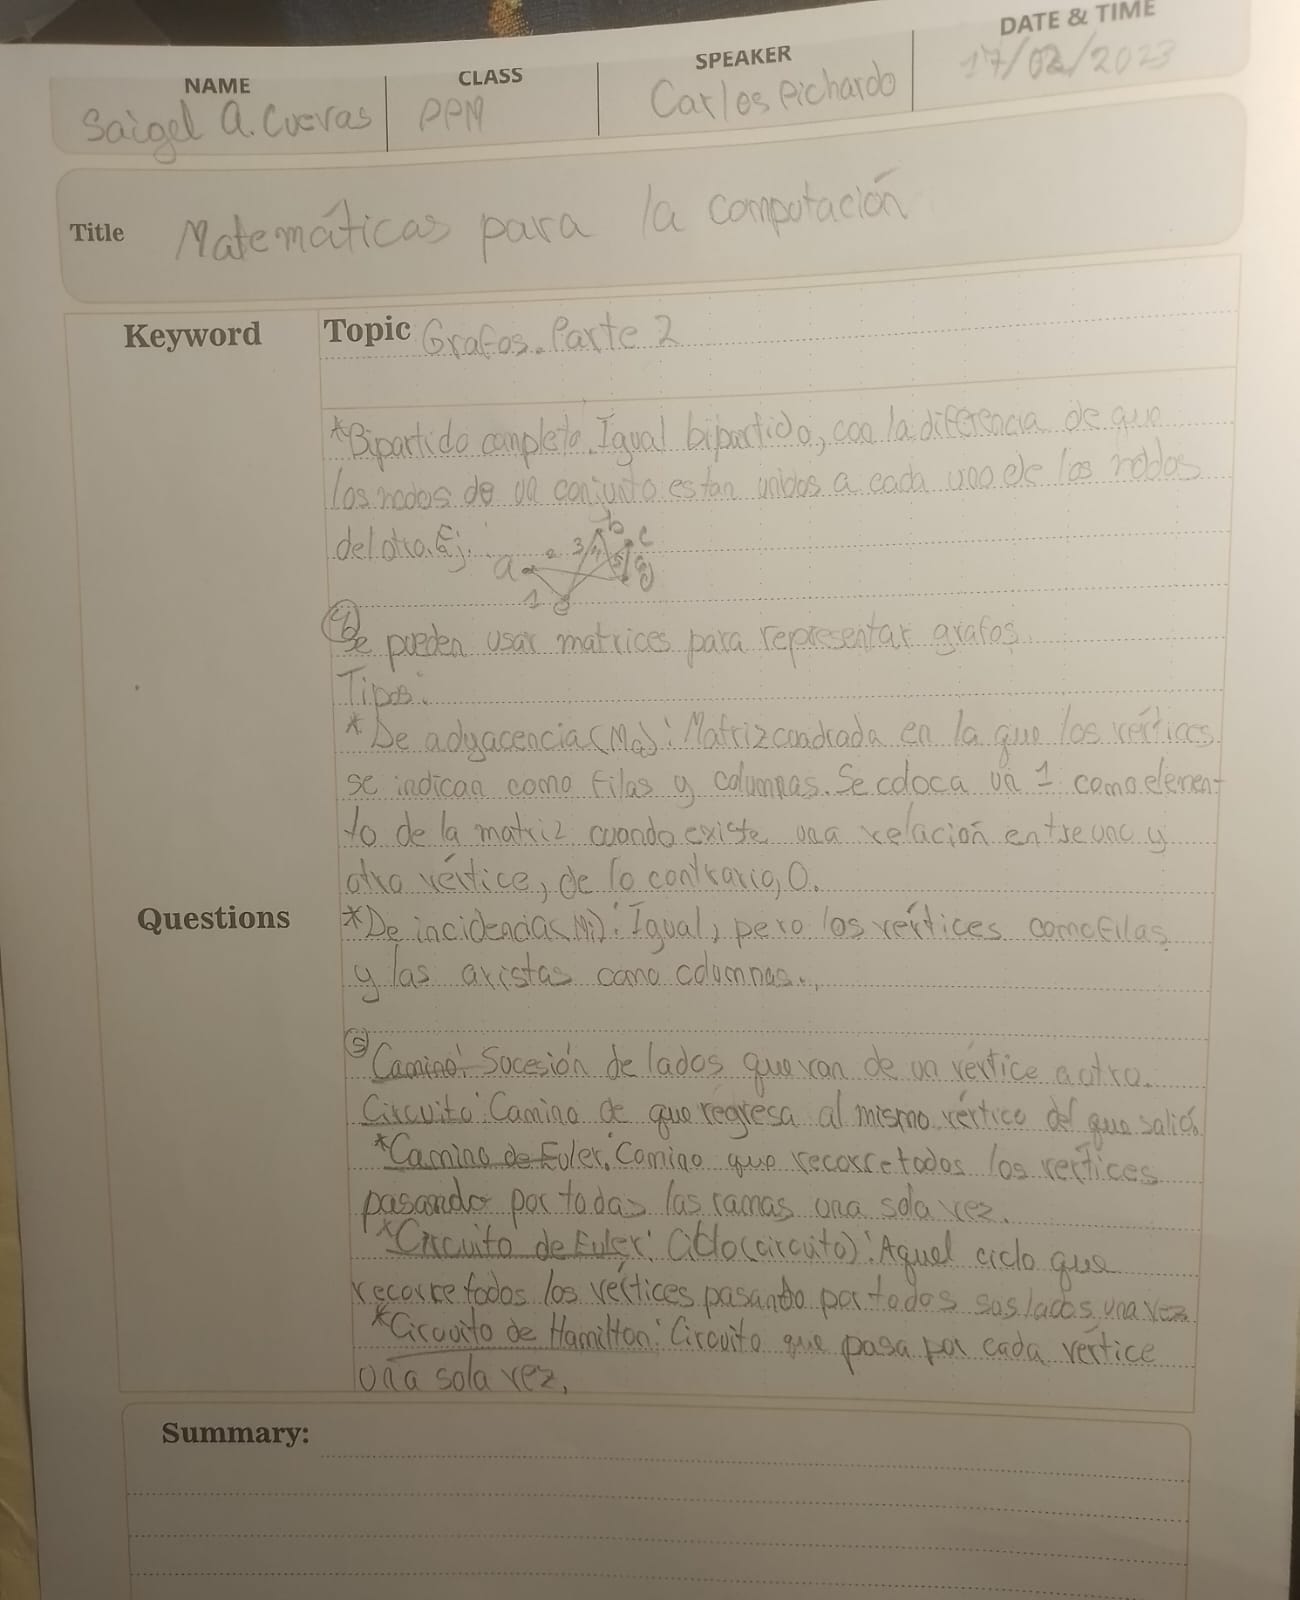 NAME CLASS SPEAKER DATE & TIME
Saigel A. Cuevas PPM Carlos Pichardo 17/02/2023
Title Matemáticas para la computación
Keyword Topic Grafos. Parte 2
*Bipartido completo. Igual bipartido, con la diferencia de que
los nodos de un conjunto estan unidos a cada uno de los nodos
del otro. Ej:
a b c
3
1
④ Se pueden usar matrices para representar grafos.
Tipos:
* De adyacencia (Ma): Matriz cuadrada en la que los vértices
se indican como filas y columnas. Se coloca un 1 como elemen-
to de la matriz cuando existe una relación entre uno y
otro vértice, de lo contrario, 0.
Questions *De incidencia (Mi): Igual, pero los vértices como filas
y las aristas como columnas.
⑤ Camino: Sucesión de lados que van de un vértice a otro.
Circuito: Camino de que regresa al mismo vértice del que salió.
*Camino de Euler: Camino que recorre todos los vértices
pasando por todas las ramas una sola vez.
*Circuito de Euler: Ciclo (circuito): Aquel ciclo que
recorre todos los vértices pasando por todos sus lados una vez
*Circuito de Hamilton: Circuito que pasa por cada vértice
una sola vez.
Summary: